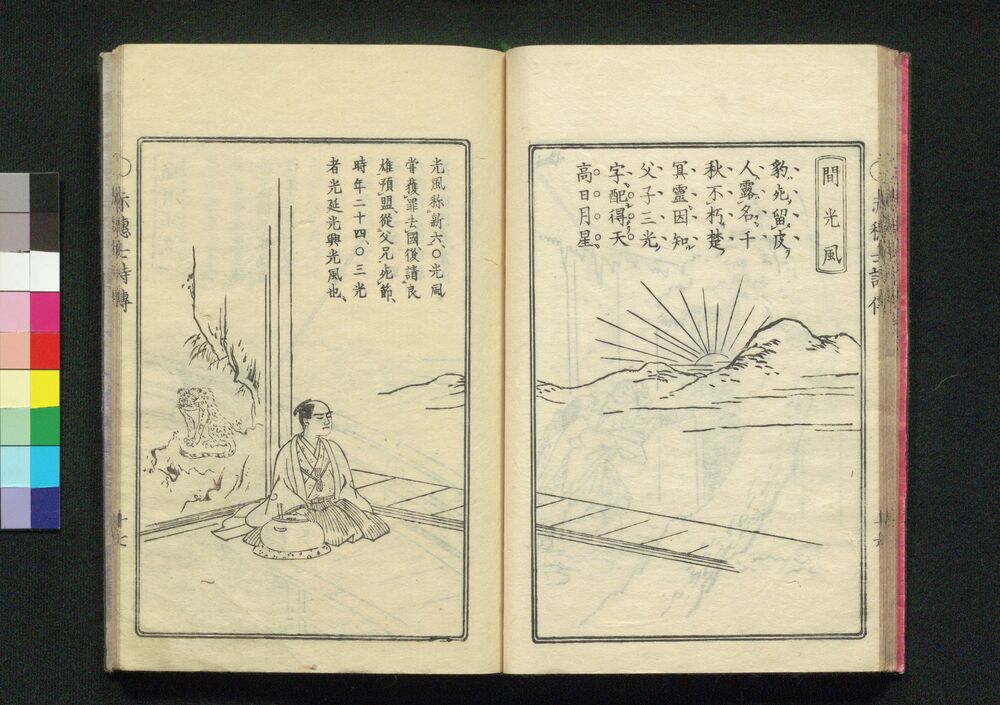 間光風
豹死留皮
人露名千
秋不朽楚
冥靈因知
父子三光
字配得天
高日月星
光風称新六〇光風
甞獲罪去國後請良
雄預盟從父兄死節
時年二十四〇三光
者光延光興光風也
赤穗士詩傳
十七